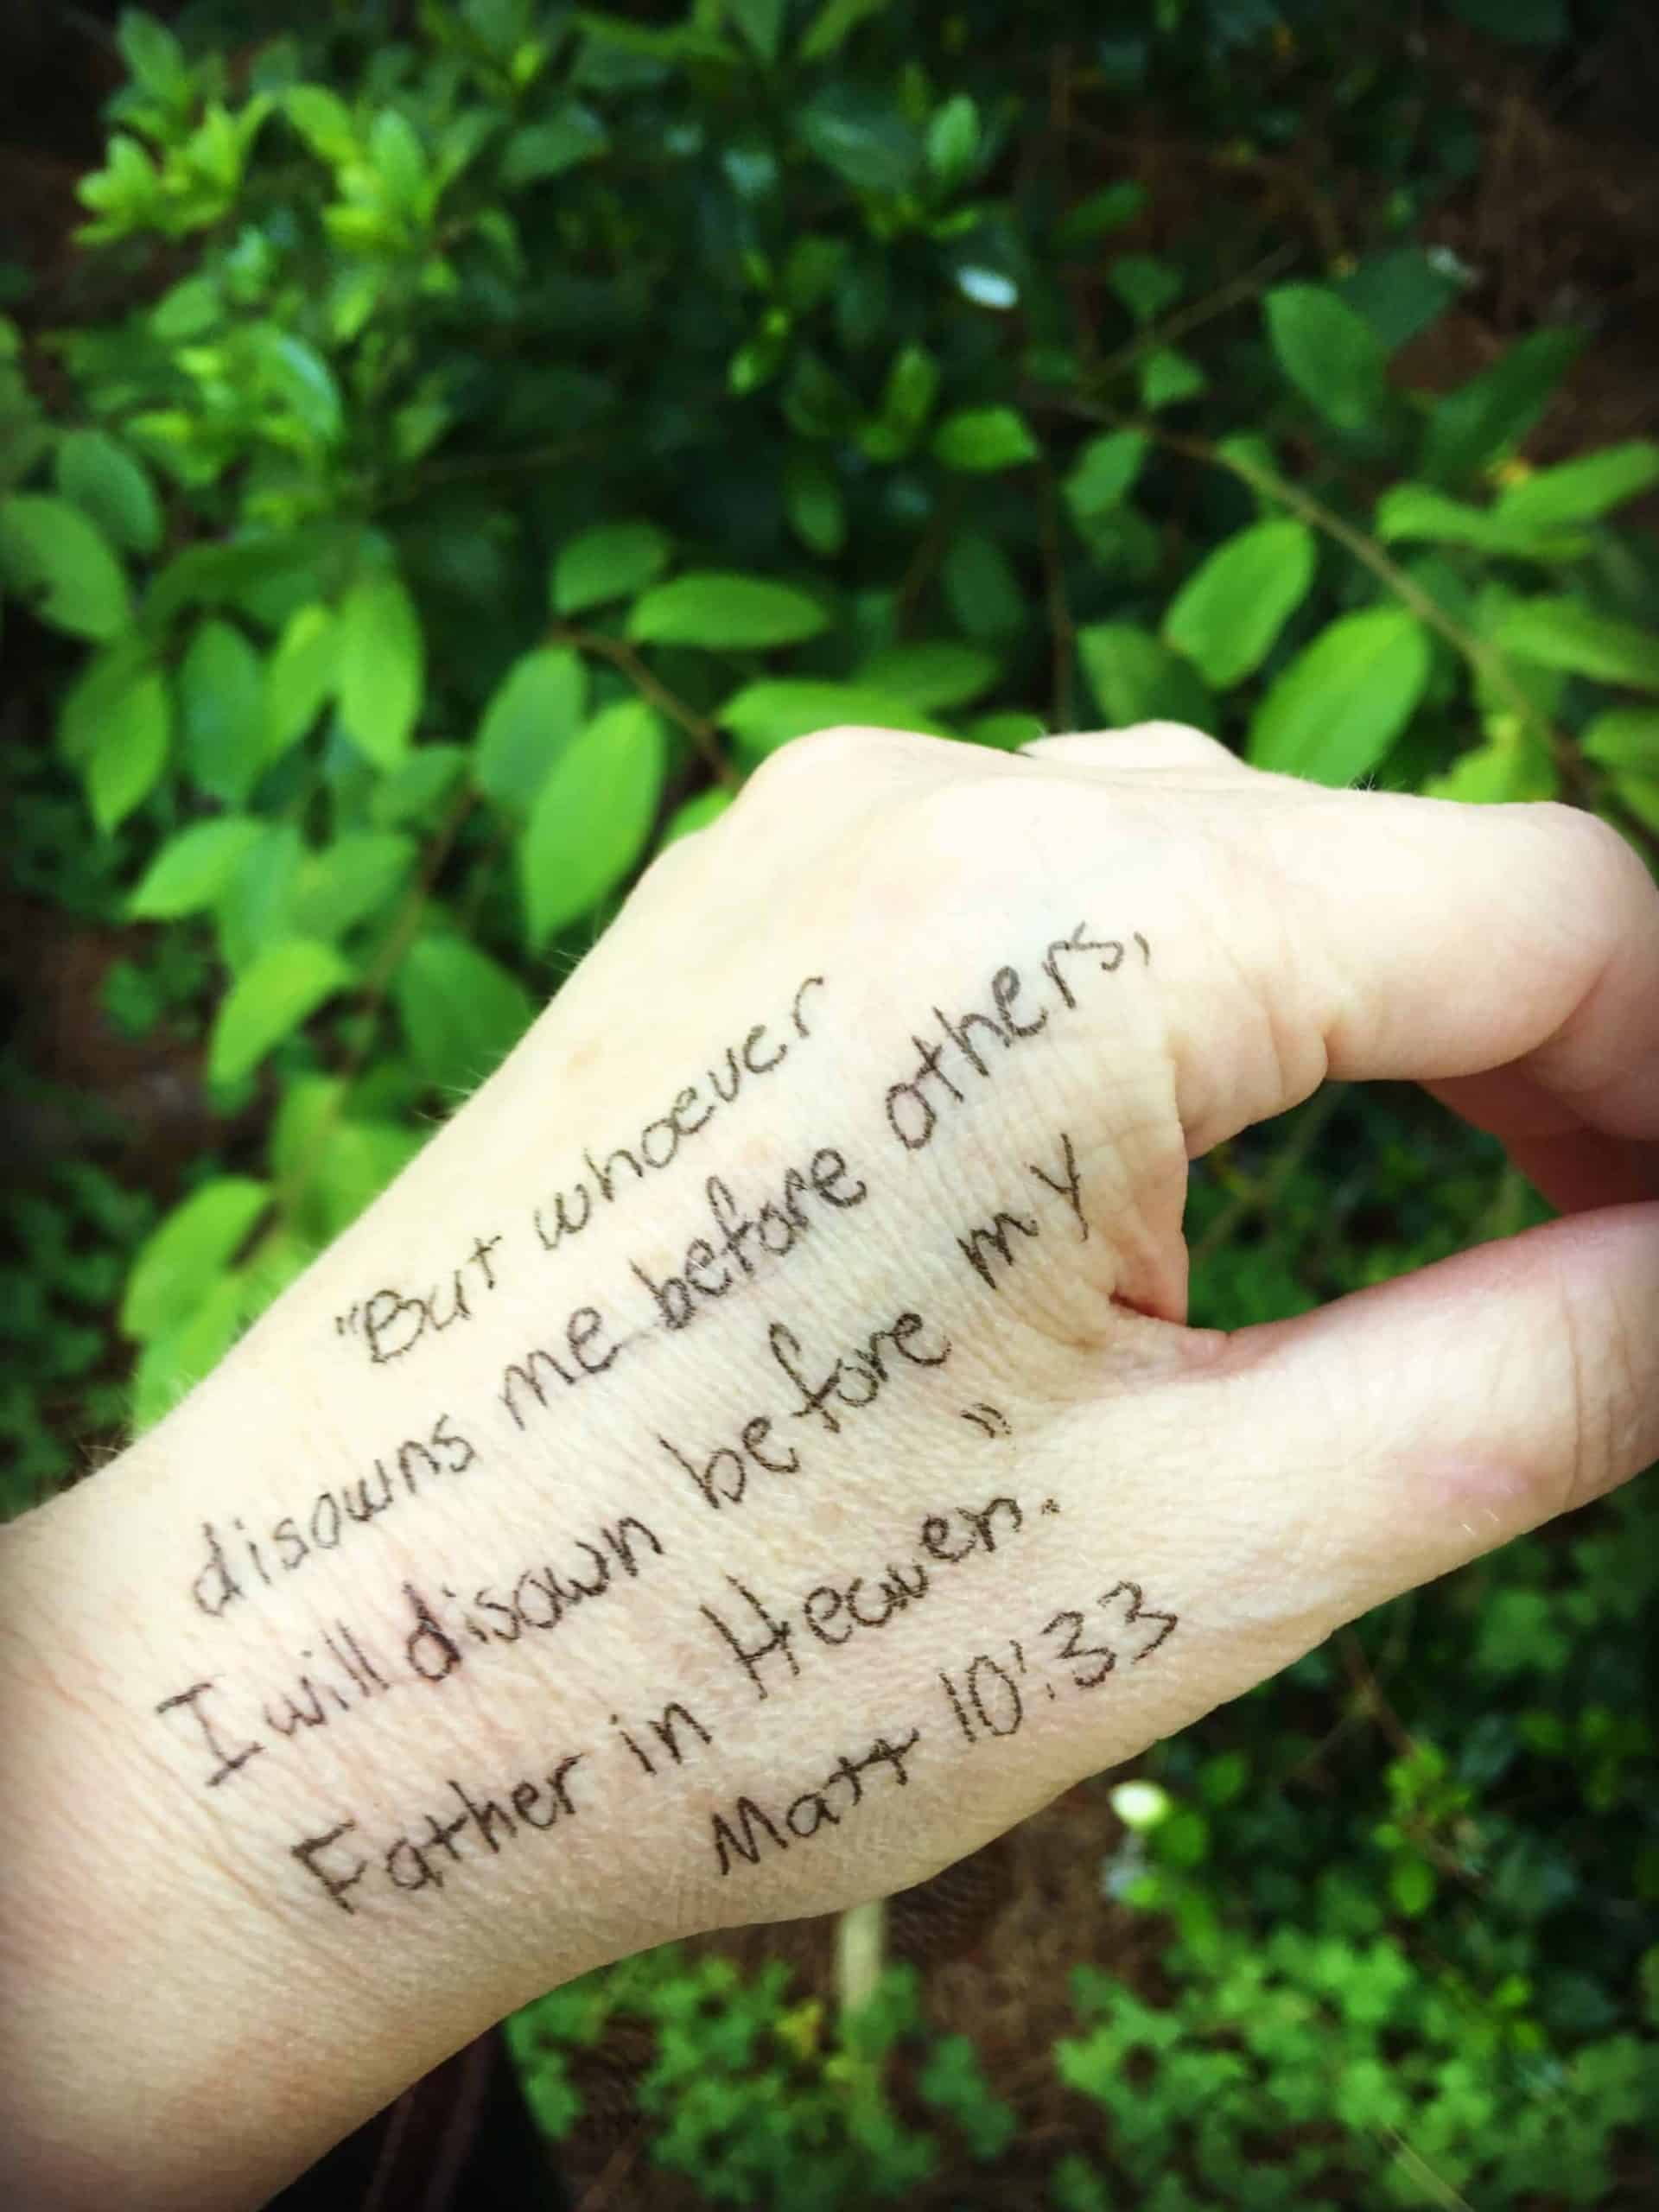 "But whoever
disowns me before others,
I will disown before my
Father in Heaven."
Matt 10:33